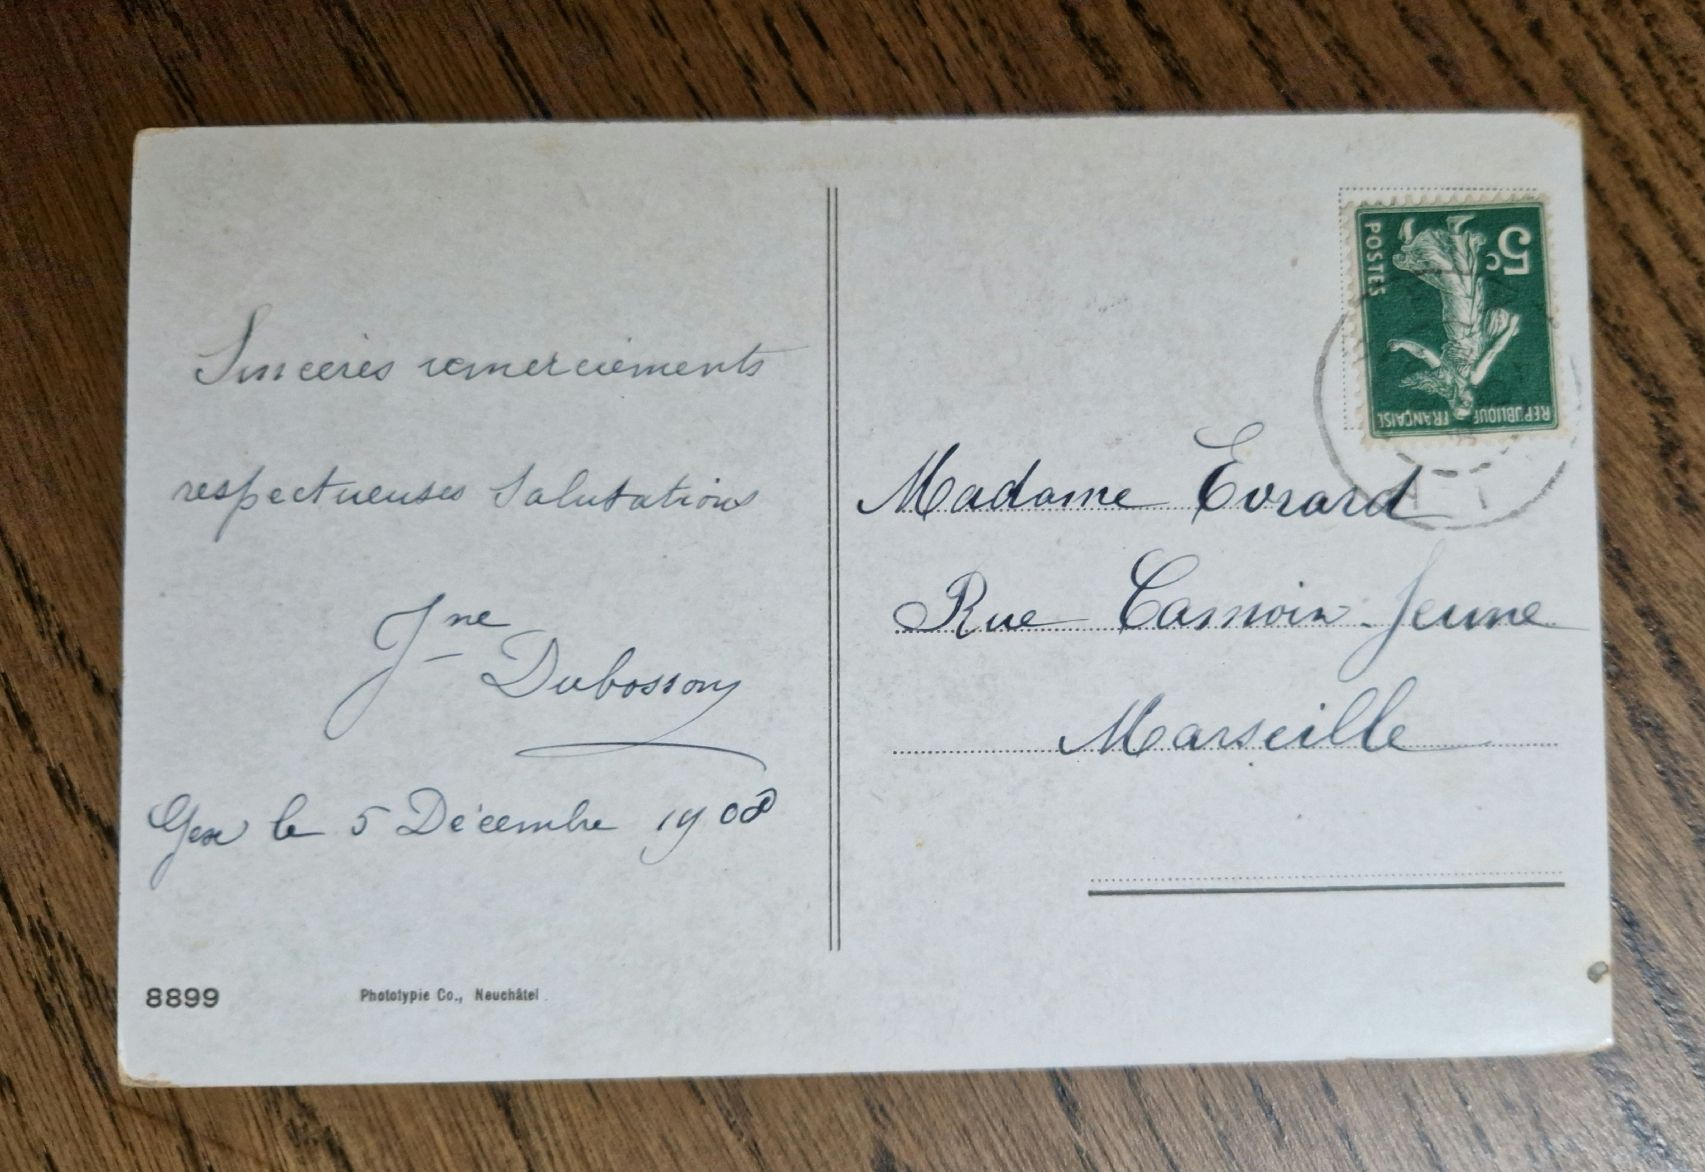 Sincères remerciements
respectueuses Salutations
Jne
Dubosson
Gex le 5 Décembre 1908
8899
Phototypie Co., Neuchâtel.
5c
POSTES
REPUBLIQUE FRANÇAISE
Madame Evrard
Rue Jeune
Marseille